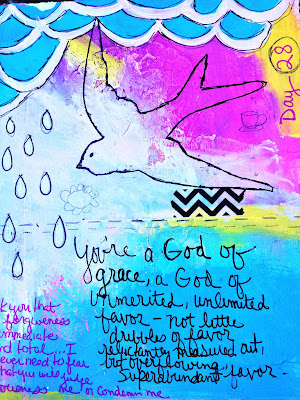 Day 28
You're a God of
grace, a God of
unmerited, unlimited
favor - not little
dribbles of favor
reluctantly measured out,
but overflowing,
superabundant favor.
k you that
forgiveness
immediate
d total... I
ever need to fear
that you will judge
me or condemn me